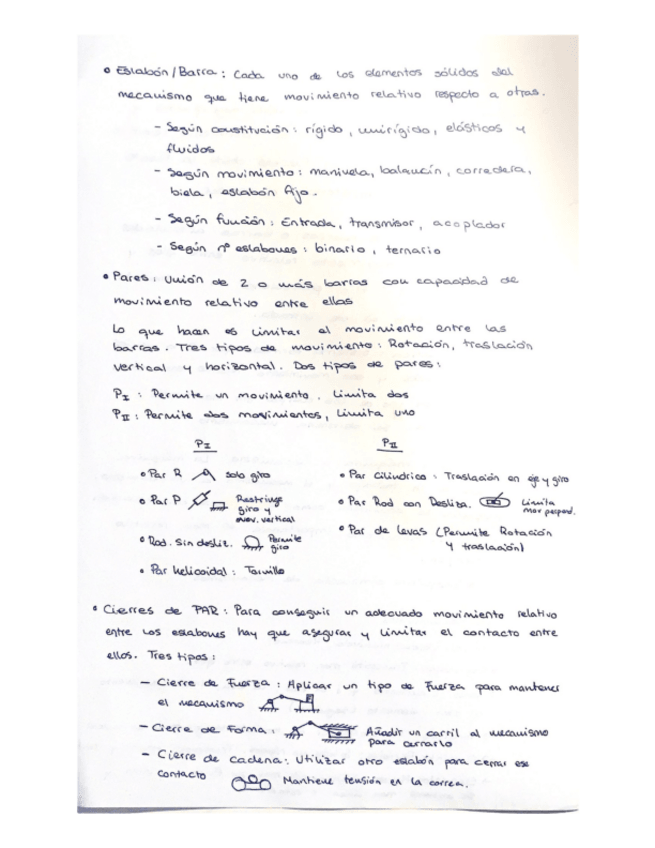 • Eslabón/Barra: Cada uno de los elementos sólidos del
mecanismo que tiene movimiento relativo respecto a otras.
- Según constitución: rígido, unirígido, elásticos y
fluidos
- Según movimiento: manivela, balancín, corredera,
biela, eslabón fijo.
- Según función: Entrada, transmisor, acoplador
- Según nº eslabones: binario, ternario
• Pares: Unión de 2 o más barras con capacidad de
movimiento relativo entre ellas
Lo que hacen es limitar el movimiento entre las
barras. Tres tipos de movimiento: Rotación, traslación
vertical y horizontal. Dos tipos de pares:
PI: Permite un movimiento. Limita dos
PII: Permite dos movimientos, Limita uno
PI
PII
• Par R solo giro
• Par Cilíndrico: Traslación en eje y giro
• Par P Restringe
giro y
mov. vertical
• Par Rod con Desliza. Limita
mov perpend.
• Rod. Sin desliz. Permite
giro
• Par de levas (Permite Rotación
y traslación)
• Par helicoidal: Tornillo
• Cierres de PAR: Para conseguir un adecuado movimiento relativo
entre los eslabones hay que asegurar y limitar el contacto entre
ellos. Tres tipos:
- Cierre de Fuerza: Aplicar un tipo de Fuerza para mantener
el mecanismo
- Cierre de Forma: Añadir un carril al mecanismo
para cerrarlo
- Cierre de cadena: Utilizar otro eslabón para cerrar ese
contacto Mantiene tensión en la correa.